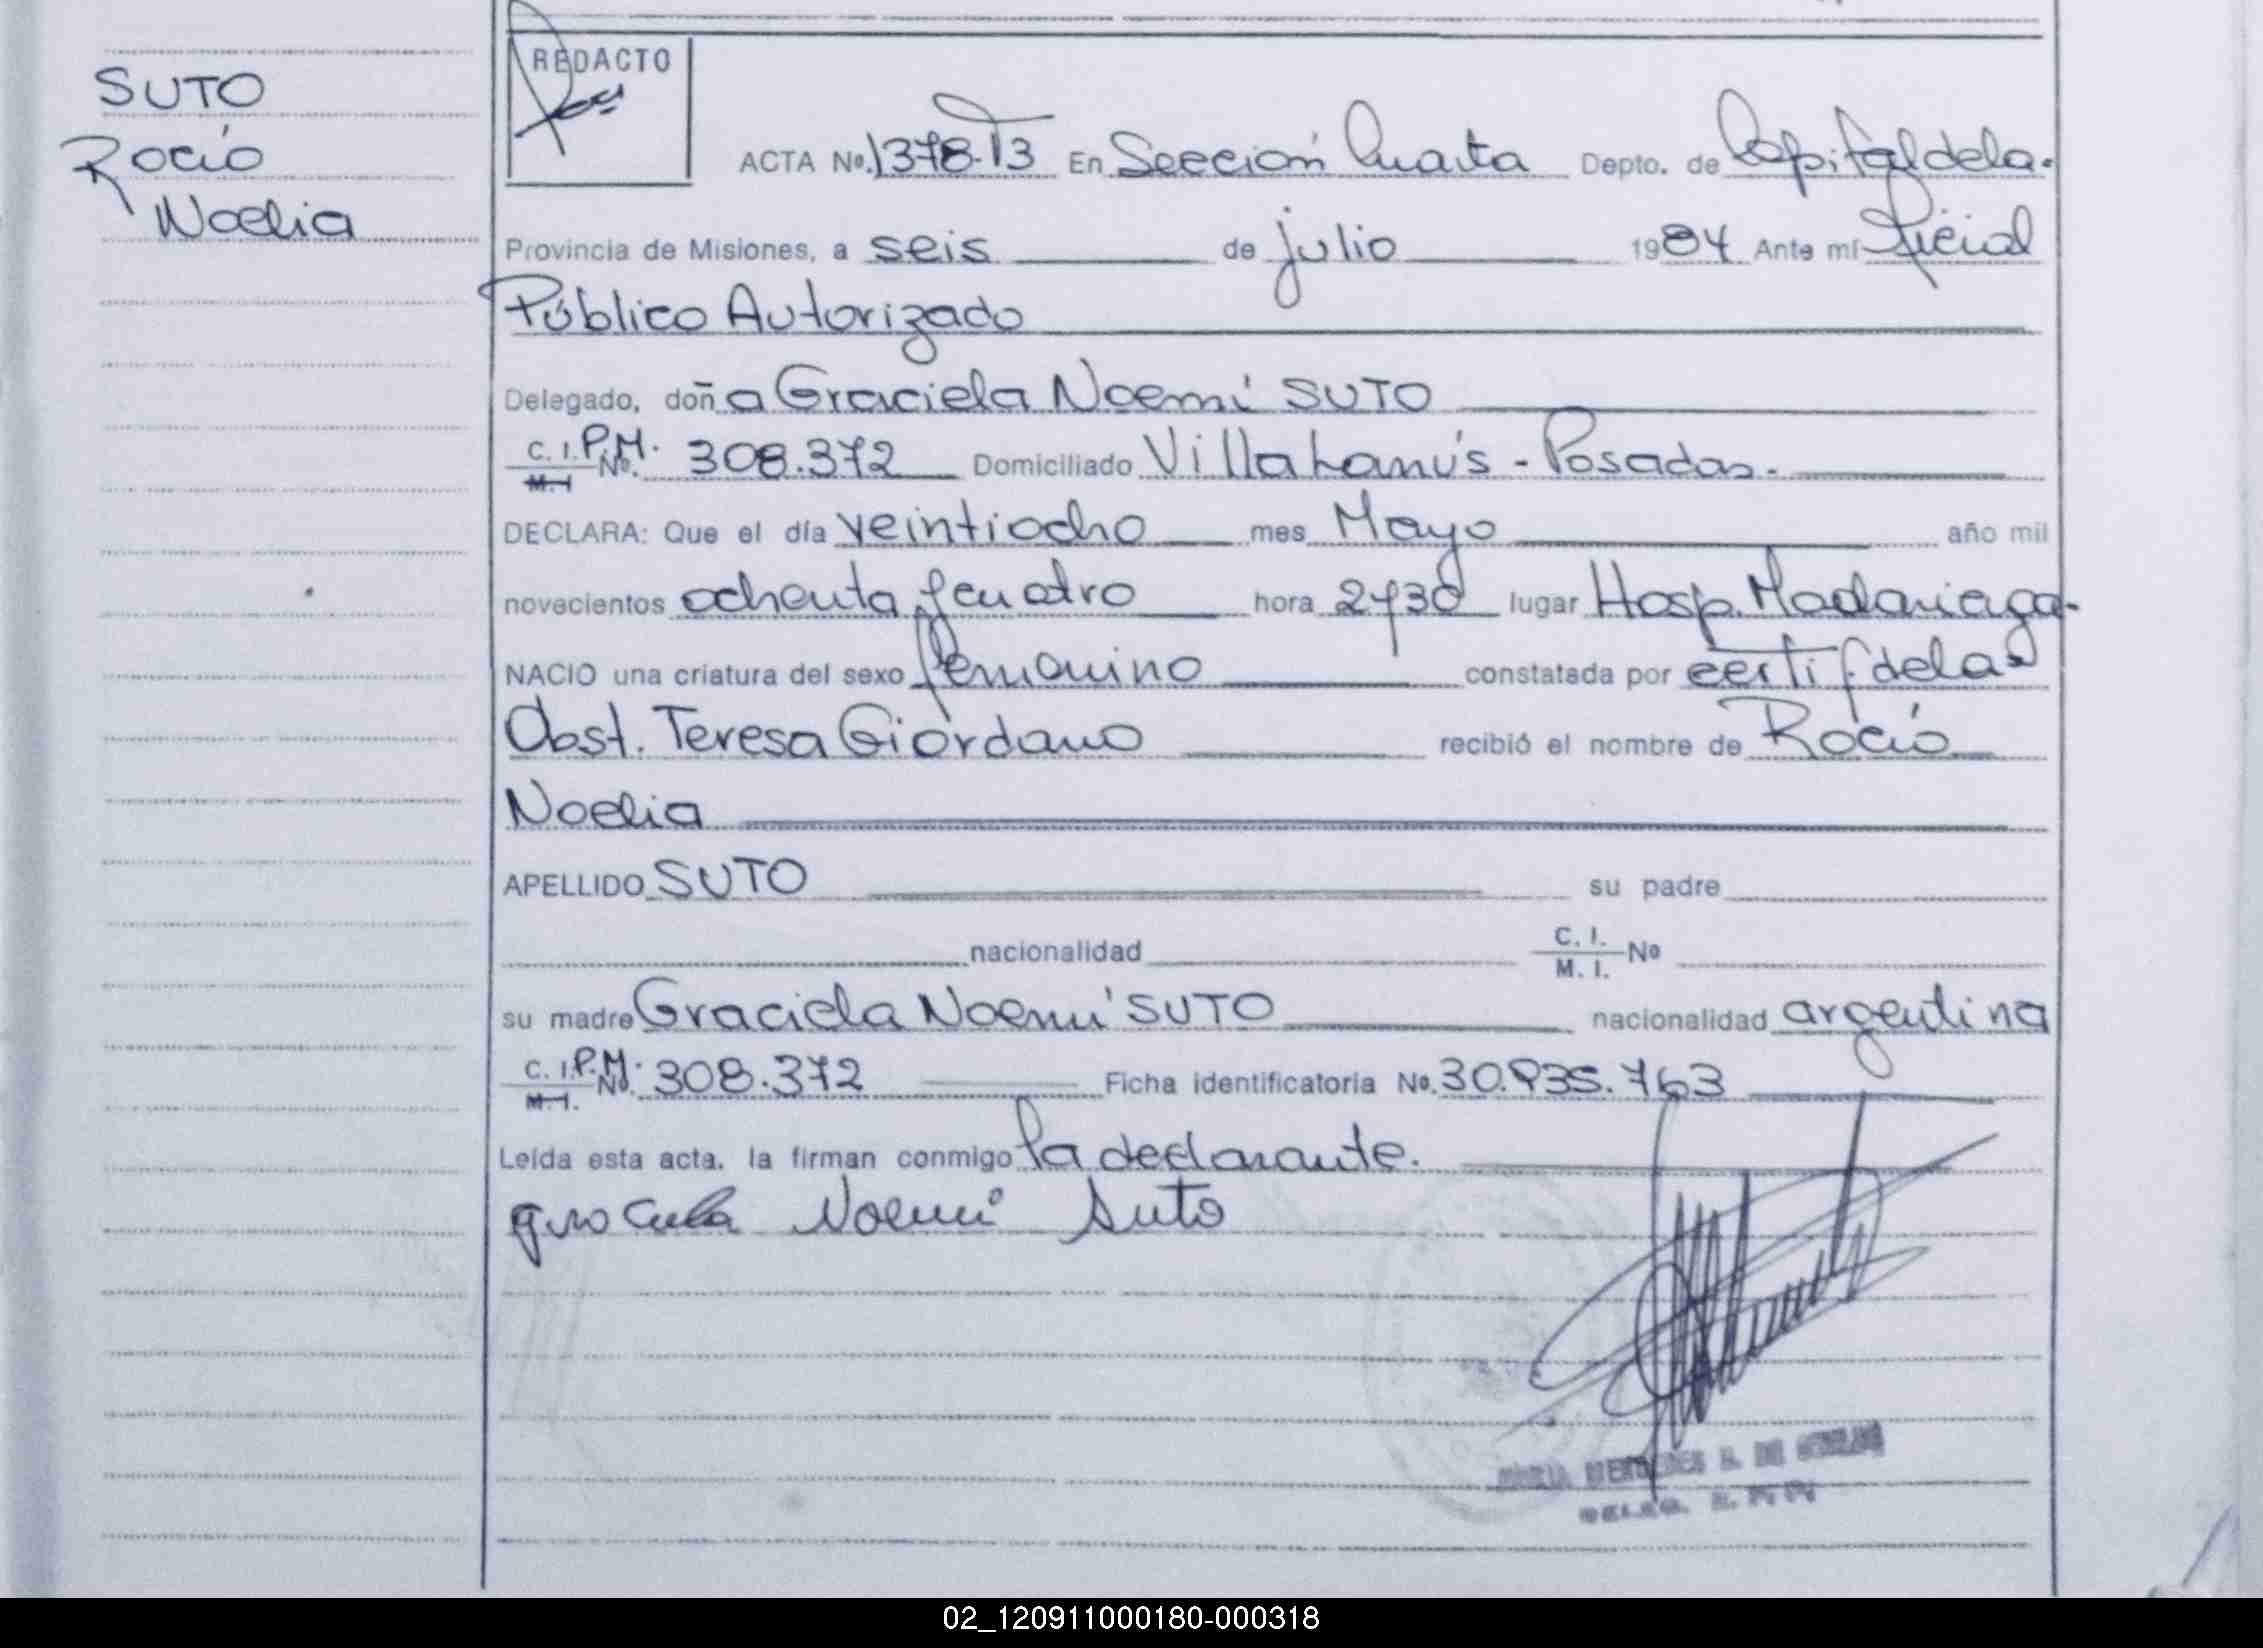 SUTO
Rocío
Noelia
REDACTO
ACTA Nº. 1378-T3 En Sección Cuarta Depto. de Capital de la.
Provincia de Misiones, a seis de julio 1984 Ante mí Oficial
Público Autorizado
Delegado, doña Graciela Noemí SUTO
C. I. P.M. Nº. 308.372 Domiciliado Villa Lanús - Posadas.
M. I
DECLARA: Que el día veintiocho mes Mayo año mil
novecientos ochenta y cuatro hora lugar Hosp. Madariaga-
NACIO una criatura del sexo femenino constatada por certif de la
Obst. Teresa Giordano recibió el nombre de Rocío
Noelia
APELLIDO SUTO su padre
nacionalidad C. I. Nº
M. I.
su madre Graciela Noemí SUTO nacionalidad argentina
C. I. P.M. Nº. 308.372 Ficha identificatoria Nº. 30.935.763
M. I.
Leída esta acta. la firman conmigo la declarante.
Graciela Noemí Suto
MARIA MERCEDES DE
02_120911000180-000318